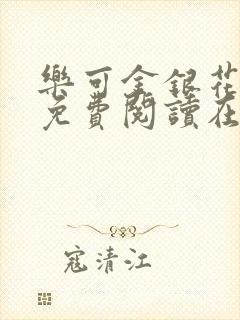 樂可金銀花
免費閱讀在
寇清江